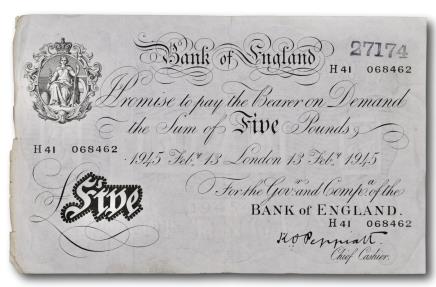 Bank of England
27174
H41 068462
I Promise to pay the Bearer on Demand
the Sum of Five Pounds
H41 068462
1945 Feb.y 13 London 13 Feb.y 1945
For the Gov.r and Comp.a of the
BANK of ENGLAND.
£Five
H41 068462
K O Peppiatt.
Chief Cashier.